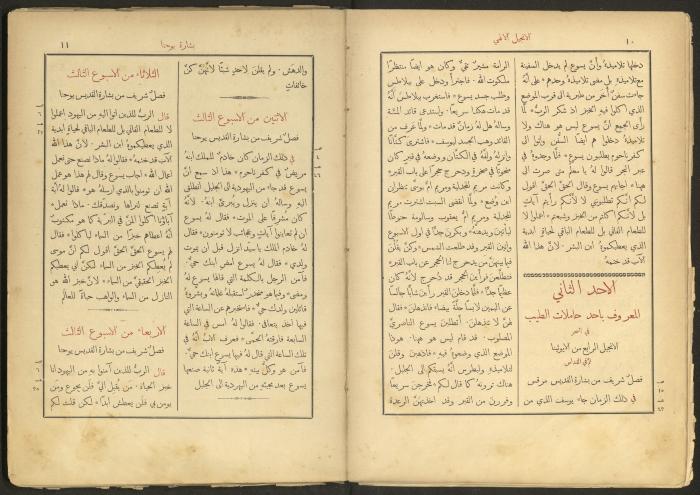 ١٠
الانجيل الالهي
دخلها تلاميذهُ وأنَّ يسوع لم يدخل السفينة
مع تلاميذهِ بل مضى تلاميذهُ وحدهم * على أنهُ
جاءت سفنٌ أُخر من طبرية الى قرب الموضع
الذي اكلوا فيهِ الخبز اذ شكر الربُّ * فلما
رأى الجمع أنَّ يسوع ليس هو هناك ولا
تلاميذهُ دخلوا هم ايضًا السفن وأتوا الى
كفرناحوم يطلبون يسوع * فلما وجدوهُ في
عبر البحر قالوا لهُ يا معلم متى صرت الى
هنا * اجابهم يسوع وقال الحقَّ الحقَّ اقول
لكم انكم تطلبوني لا لانكم رأيتم الآيات
بل لانكم اكلتم من الخبز وشبعتم * اعملوا لا
للطعام الفاني بل للطعام الباقي لحياةٍ ابدية
الذي يعطيكموهُ ابن البشر . لانَّ هذا الله
الآب قد ختمهُ
الاحد الثاني
المعروف باحد حاملات الطيب
في السحر
الانجيل الرابع من الايوثينا
وفي القداس
فصلٌ شريف من بشارة القديس مرقس
في ذلك الزمان جاء يوسف الذي من
الرامة مشيرٌ تقيٌّ وكان هو ايضًا منتظرًا
ملكوت الله . فاجترأ ودخل على بيلاطس
وطلب جسد يسوع * فاستغرب بيلاطس أنهُ
قد مات هكذا سريعًا . واستدعى قائد المئة
وسألهُ هل لهُ زمانٌ قد مات * ولما عرف من
القائد وهب الجسد ليوسف * فاشترى كتانًا
وانزلهُ ولفَّهُ في الكتان ووضعهُ في قبرٍ كان
منحوتًا في صخرة ودحرج حجرًا على باب القبر *
وكانت مريم المجدلية ومريم امُّ يوسي تنظران
اين وُضع * ولما انقضى السبت اشترت مريم
المجدلية ومريم امُّ يعقوب وسالومة حنوطًا
ليأتين ويدهنَّهُ * وبكرن جدًّا في اول الاسبوع
واتين القبر وقد طلعت الشمس * وكنَّ يقلن
فيما بينهنَّ من يدحرج لنا الحجر عن باب القبر *
فتطلَّعن فرأين الحجر قد دُحرج لانهُ كان
عظيمًا جدًّا * فلما دخلن القبر رأين شابًّا جالسًا
عن اليمين لابسًا حلَّةً بيضاء فانذهلن * فقال
لهنَّ لا تنذهلنَ . أتطلبنَ يسوع الناصريَّ
المصلوب . قد قام ليس هو ههنا . هوذا
الموضع الذي وضعوهُ فيهِ * فاذهبنَ وقلنَ
لتلاميذهِ ولبطرس أنهُ يسبقكم الى الجليل .
هناك ترونهُ كما قال لكم * فخرجنَ سريعًا
وفررنَ من القبر وقد اخذتهنَّ الرعدة
بشارة يوحنا
١١
والدهش . ولم يقلنَ لاحدٍ شيئًا لانهنَّ كنَّ
خائفاتٍ
الاثنين من الاسبوع الثالث
فصلٌ شريف من بشارة القديس يوحنا
في ذلك الزمان كان خادمٌ للملك ابنهُ
مريضٌ في كفرناحوم * هذا لما سمع أنَّ
يسوع قد جاء من اليهودية الى الجليل انطلق
اليهِ وسألهُ ان ينزل ويبرئ ابنهُ . لانهُ
كان مشرفًا على الموت * فقال لهُ يسوع
ان لم تعاينوا آياتٍ وعجائب لا تؤمنون * فقال
لهُ خادم الملك يا سيّد انزل قبل أن يموت
ولدي * فقال لهُ يسوع امضِ ابنك حيٌّ .
فآمن الرجل بالكلمة التي قالها يسوع لهُ
ومضى * وفيما هو منحدرٌ استقبلهُ غلمانهُ وبشَّروهُ
قائلين ولدك حيٌّ * فاستخبرهم عن الساعة التي
فيها اخذ يتعافى . فقالوا لهُ امس في الساعة
السابعة فارقتهُ الحمَّى * فعرف الاب أنهُ في
تلك الساعة التي قال لهُ فيها يسوع ابنك حيٌّ .
فآمن هو وكلُّ بيتهِ * هذه آيةٌ ثانية صنعها
يسوع بعد مجيئهِ من اليهودية الى الجليل
الثلاثاء من الاسبوع الثالث
فصلٌ شريف من بشارة القديس يوحنا
قال الربُّ للذين أتوا اليهِ من اليهود اعملوا
لا للطعام الفاني بل للطعام الباقي لحياةٍ ابدية
الذي يعطيكموهُ ابن البشر . لانَّ هذا الله
الآب قد ختمهُ * فقالوا لهُ ماذا نصنع حتى نعمل
اعمال الله * اجاب يسوع وقال لهم هذا هو عمل
الله ان تؤمنوا بالذي أرسلهُ هو * فقالوا لهُ أيَّة
آيةٍ تصنع لنراها ونصدّقك . ماذا تعمل *
آباؤنا اكلوا المنَّ في البرّية كما هو مكتوبٌ
أنهُ اعطاهم خبزًا من السماء ليأكلوا * فقال
لهم يسوع الحقَّ الحقَّ اقول لكم انَّ موسى
لم يُعطكم الخبز من السماء لكنَّ أبي يعطيكم
الخبز الحقيقيَّ من السماء * لانَّ خبز الله هو
النازل من السماء والواهب حياةً للعالم
الاربعاء من الاسبوع الثالث
فصلٌ شريف من بشارة القديس يوحنا
قال الربُّ للذين آمنوا بهِ من اليهود انا
خبز الحياة . من يُقبل اليَّ فلن يجوع ومن
يؤمن بي فلن يعطش ابدًا * لكن قلت لكم